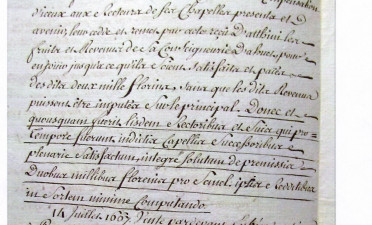 vieux aux Recteurs de ses Chapelles presents et
avenir, leur cede et remet par acte reçu D'attbini les
fruits et Revenus de la Conseigneurie D'abnet, pour
en jouir jusques ce qu'ils seient satisfaits et paies
des dits deux mille florins, sans que les dits Revenus
puissent être imputés Sur le principal. Donec et
quousquam fuerit iisdem Rectoribus et Suis qui pro
tempore fuerint in dictis Capellis Successoribus
plenarie Satisfactum, integre Solutum de premissis
Duobus millibus florenis pro Semel, ipsis Redditibus
in Sortem minime Computando.
14 Juillet Vente par devant